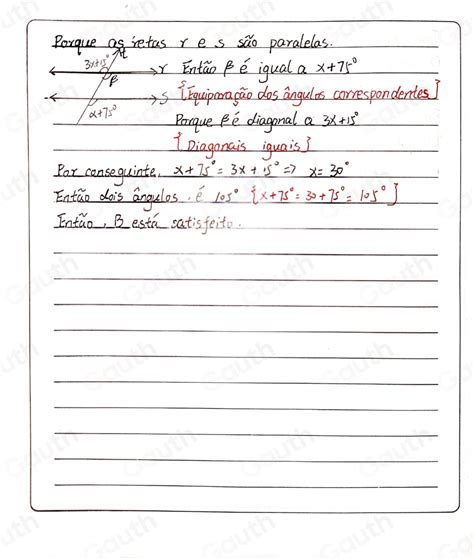 Porque as retas r e s são paralelas.
t
3x+15°
r Então β é igual a x+75°
β
s [Equiparação dos ângulos correspondentes]
x+75°
Porque β é diagonal a 3x+15°
[Diagonais iguais]
Por conseguinte, x+75° = 3x+15° => x= 30°
Então dois ângulos. é 105° {x+75° = 30+75° = 105°]
Então, B está satisfeito.
Gauth